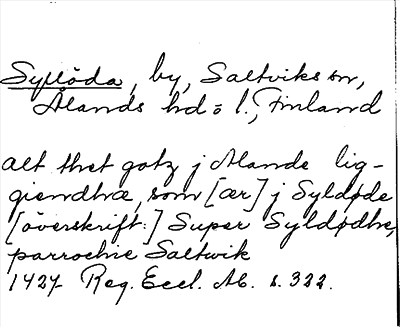 Syllöda, by, Saltviks sn,
Ålands hd o l., Finland
alt thet gotz j Alande lig-
giendhæ, som [ær] j Syldøde
[överskrift:] Super Syldødhe,
parrochie Saltwik
1427 Reg. Eccl. Ab. s. 322.